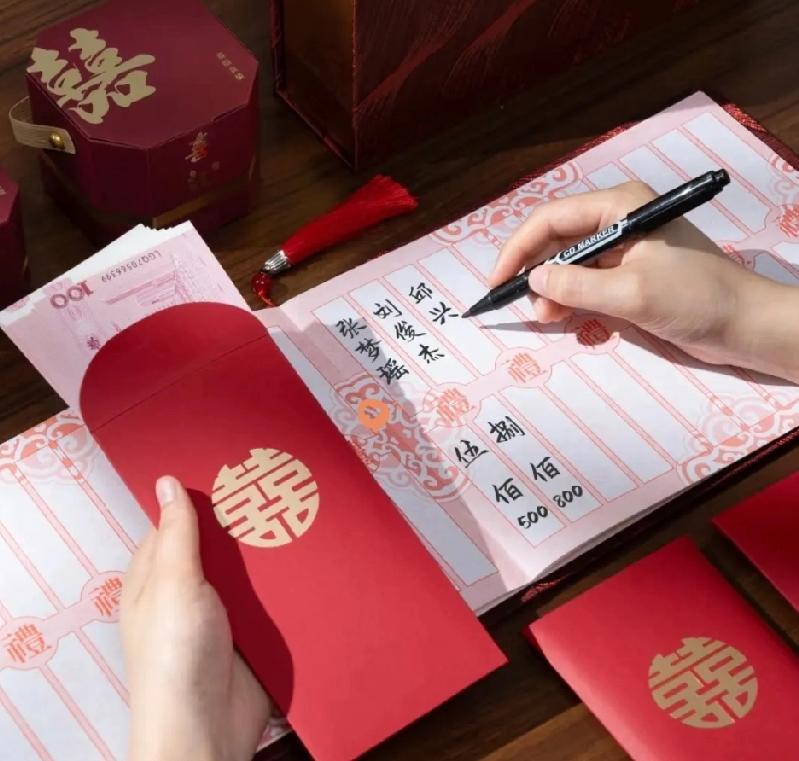 囍
100
CD MARKER
张梦瑶
刘俊杰
邱兴
禮
禮
禮
伍佰
500
捌佰
800
囍
禮
禮
囍